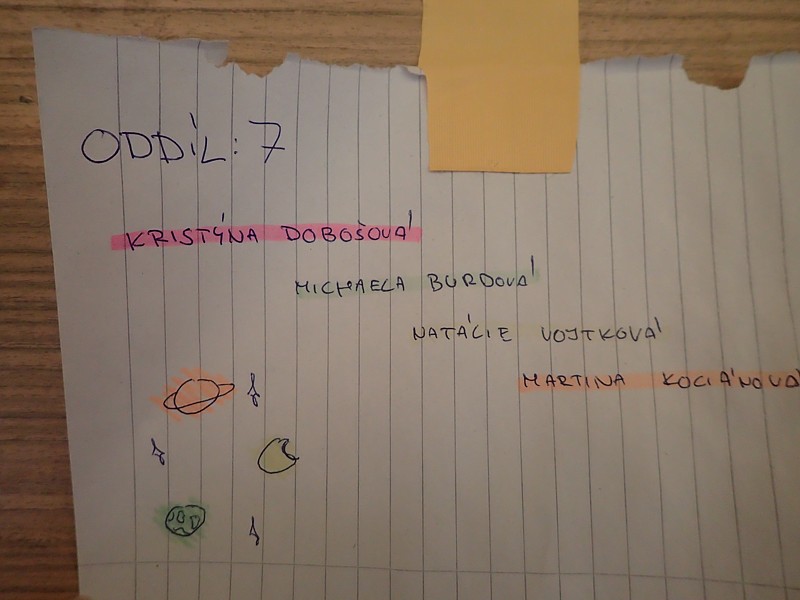 ODDÍL: 7
KRISTÝNA DOBOŠOVÁ
MICHAELA BURDOVÁ
NATÁLIE VOJTKOVÁ
MARTINA KOCIÁNOVÁ